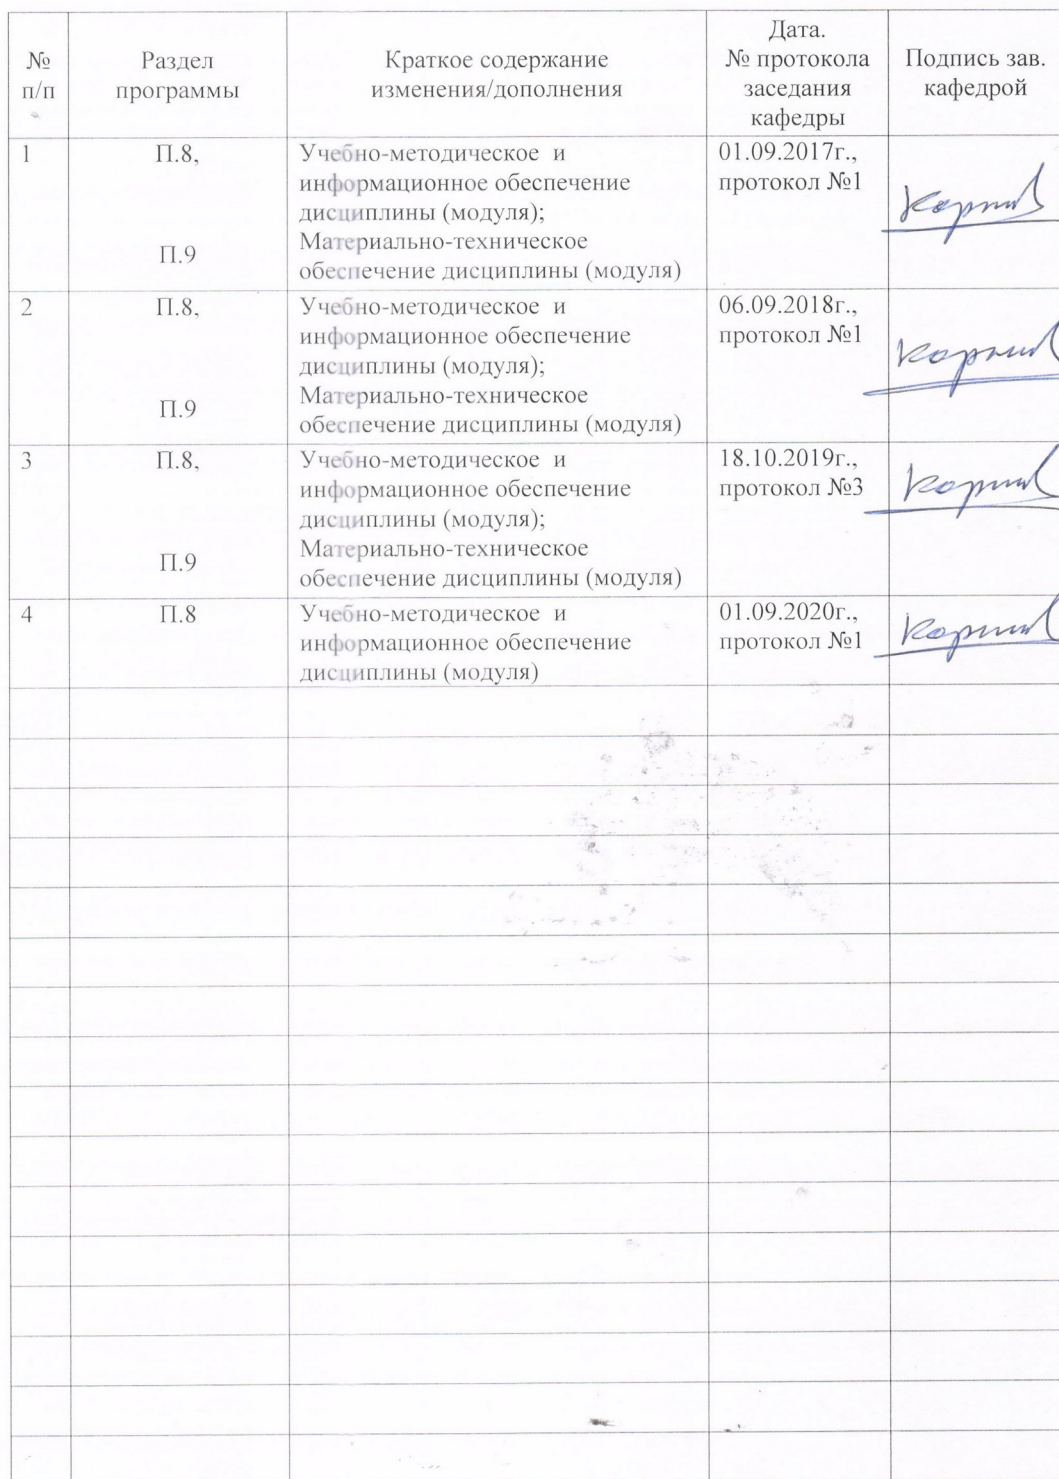 №
п/п
Раздел
программы
Краткое содержание
изменения/дополнения
Дата.
№ протокола
заседания
кафедры
Подпись зав.
кафедрой
1
П.8,
П.9
Учебно-методическое и
информационное обеспечение
дисциплины (модуля);
Материально-техническое
обеспечение дисциплины (модуля)
01.09.2017г.,
протокол №1
2
П.8,
П.9
Учебно-методическое и
информационное обеспечение
дисциплины (модуля);
Материально-техническое
обеспечение дисциплины (модуля)
06.09.2018г.,
протокол №1
3
П.8,
П.9
Учебно-методическое и
информационное обеспечение
дисциплины (модуля);
Материально-техническое
обеспечение дисциплины (модуля)
18.10.2019г.,
протокол №3
4
П.8
Учебно-методическое и
информационное обеспечение
дисциплины (модуля)
01.09.2020г.,
протокол №1